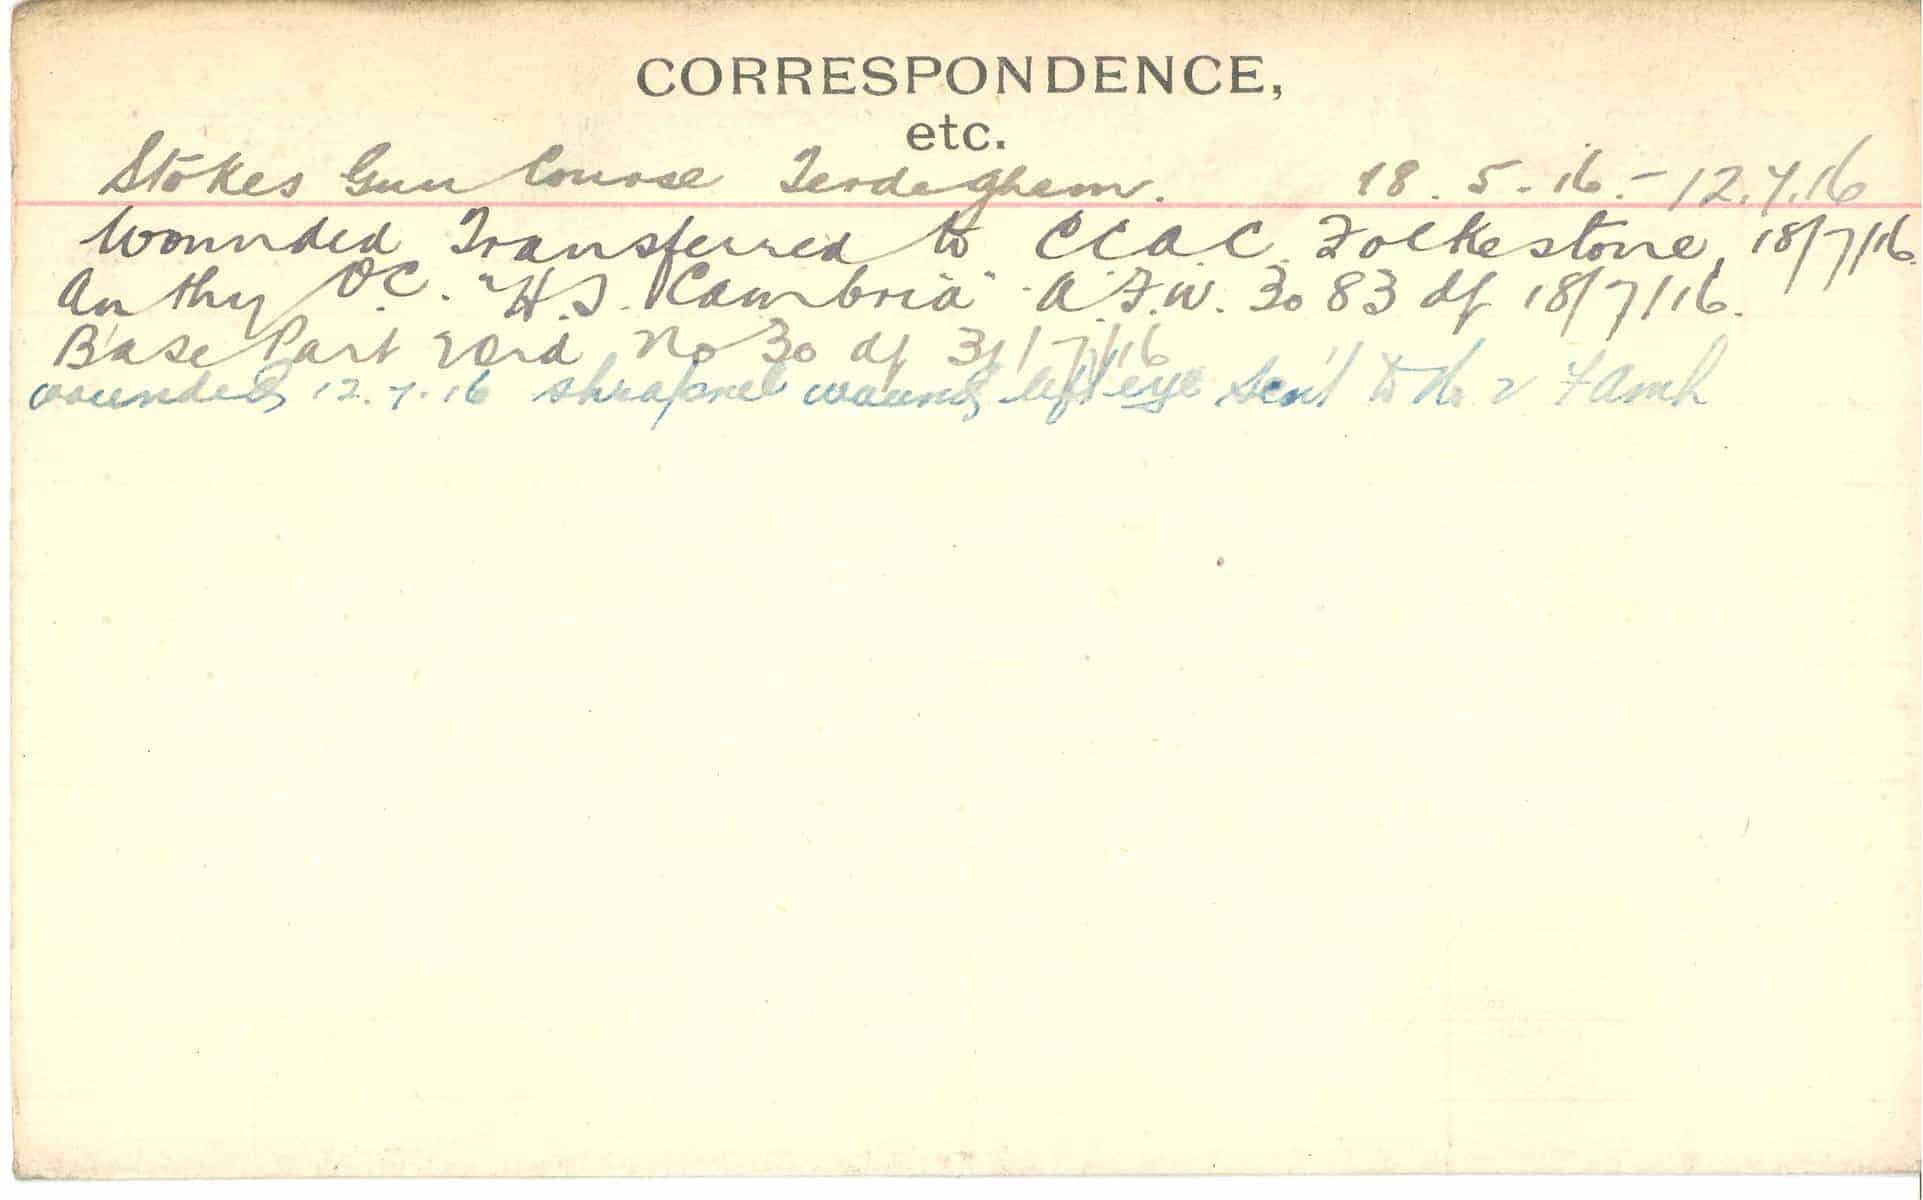 CORRESPONDENCE,
etc.
Stokes Gun Course Terdeghem. 18.5.16.-12.7.16
Wounded Transferred to CCAC Folkestone, 18/7/16.
Authy OC. "H.S. Cambria" A.F.W. 3083 df 18/7/16.
Base Part 2 Ord No 30 df 31/7/16
wounded 12.7.16 shrapnel wound left eye sent to No 2 F Amb